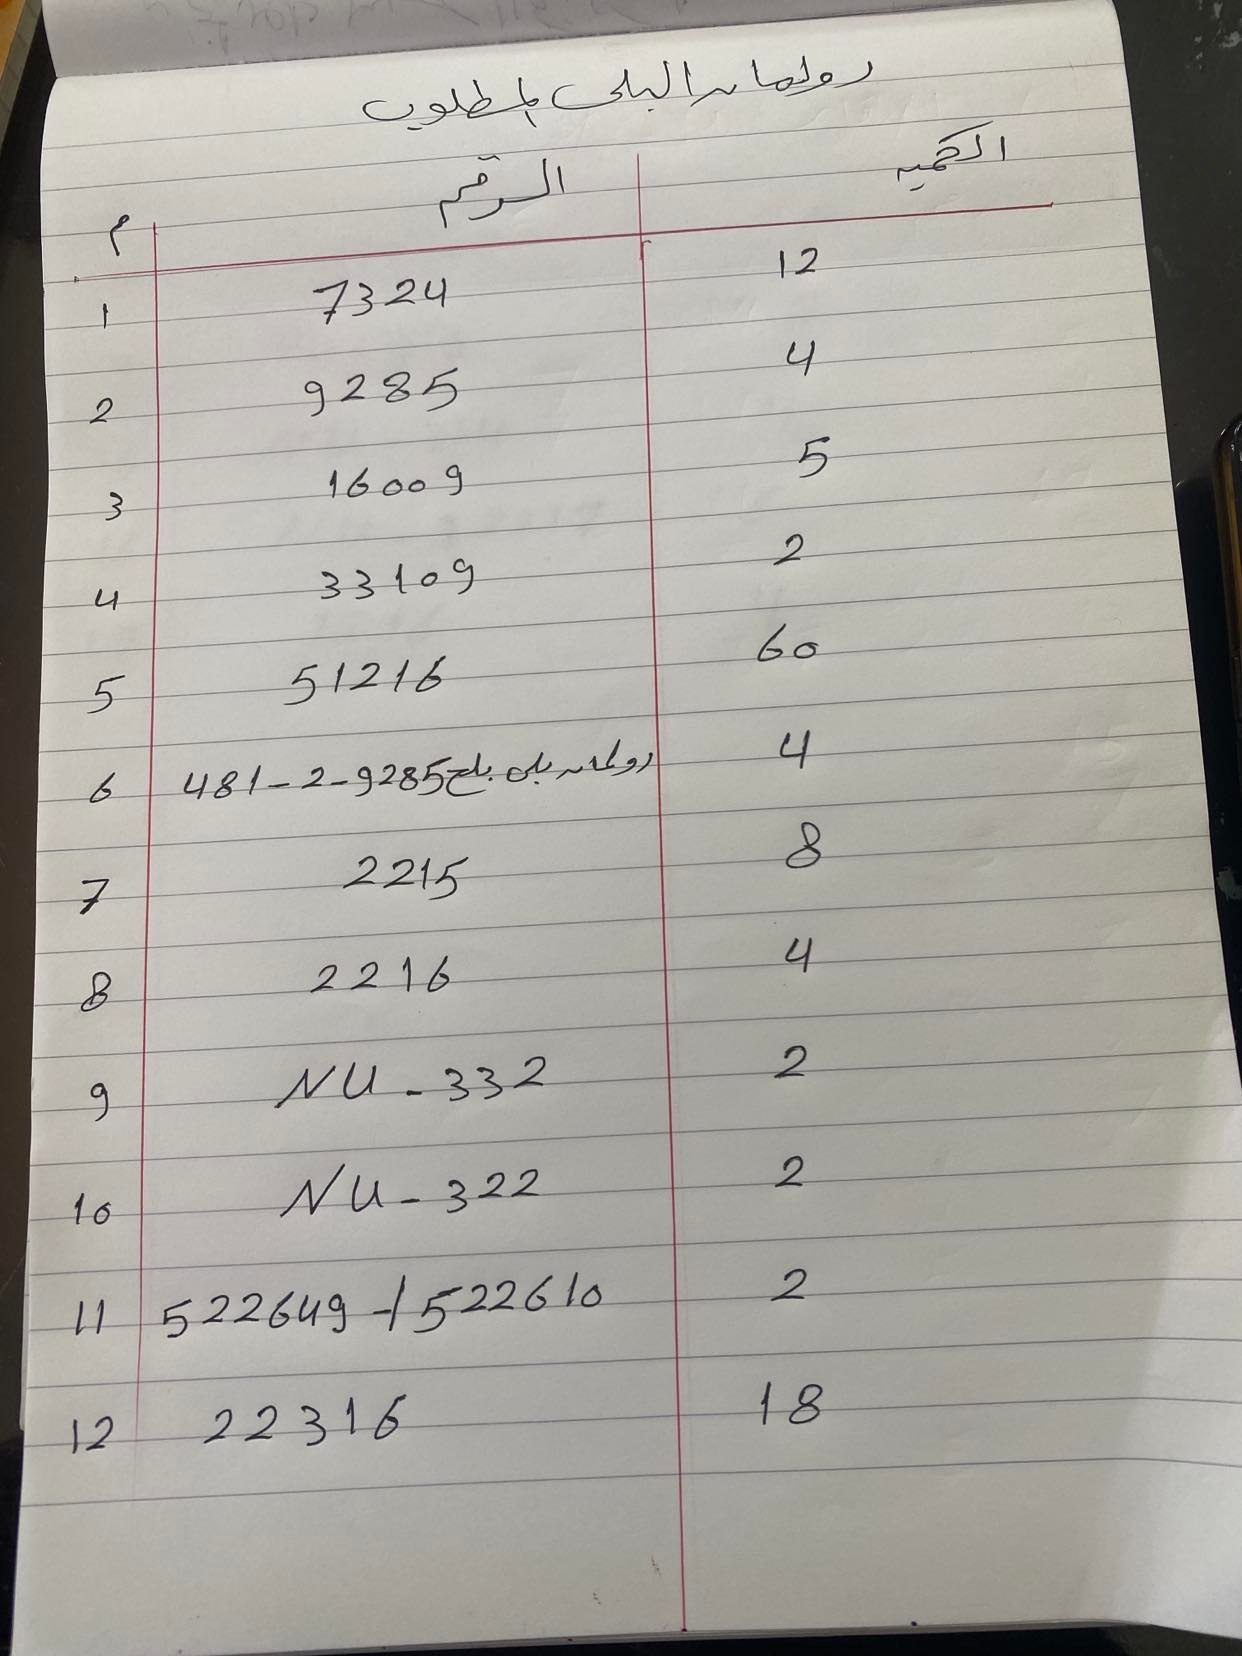 رولمان البلى المطلوب
م الرقم الكميه
1 7324 12
2 9285 4
3 16009 5
4 33109 2
5 51216 60
6 481-2-9285 رولمان بلى بلح 4
7 2215 8
8 2216 4
9 NU-332 2
10 NU-322 2
11 522649-/522610 2
12 22316 18